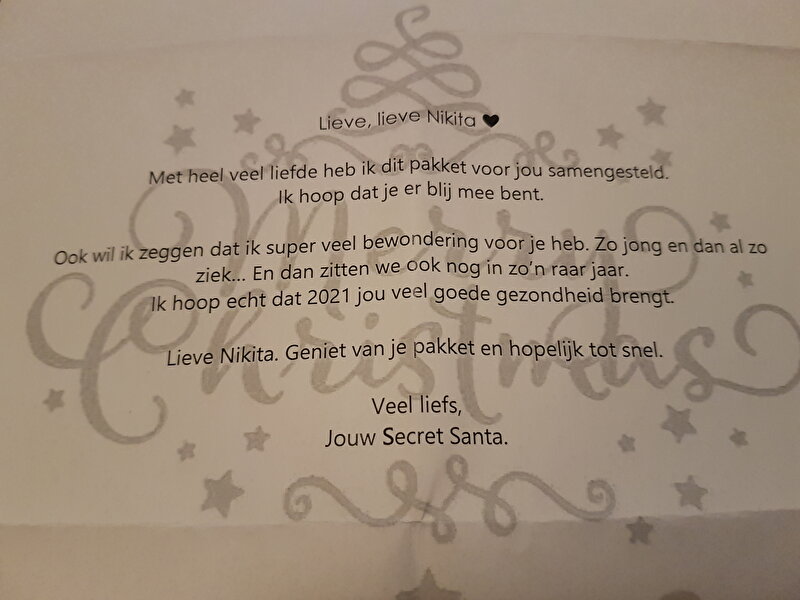 Lieve, lieve Nikita ♥
Met heel veel liefde heb ik dit pakket voor jou samengesteld.
Ik hoop dat je er blij mee bent.
Ook wil ik zeggen dat ik super veel bewondering voor je heb. Zo jong en dan al zo
ziek... En dan zitten we ook nog in zo'n raar jaar.
Ik hoop echt dat 2021 jou veel goede gezondheid brengt.
Lieve Nikita. Geniet van je pakket en hopelijk tot snel.
Veel liefs,
Jouw Secret Santa.
Merry
Christmas